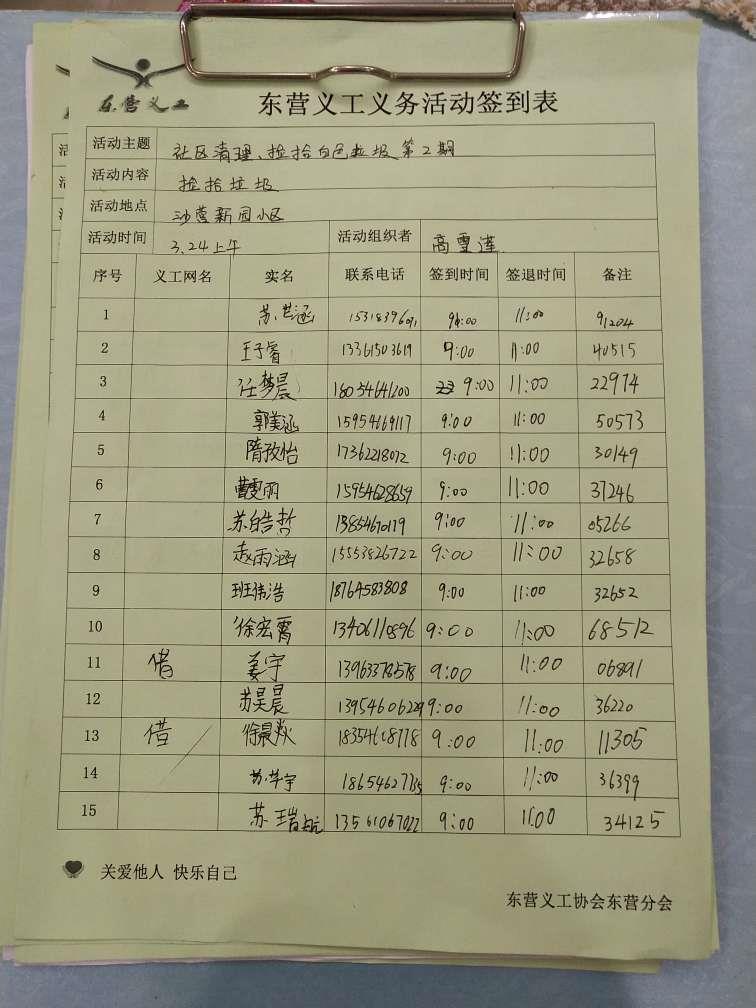 东营义工
东营义工义务活动签到表
活动主题 社区清理、捡拾白色垃圾第2期
活动内容 捡拾垃圾
活动地点 沙营新园小区
活动时间 3.24上午 活动组织者 高雪莲
序号 义工网名 实名 联系电话 签到时间 签退时间 备注
1 苏芷涵 15318396091 9:00 11:00 91204
2 王子睿 13361503619 9:00 11:00 40515
3 任梦晨 18054641200 9:00 11:00 22974
4 郭美涵 15954669117 9:00 11:00 50573
5 隋孜怡 17362218072 9:00 11:00 30149
6 曹雯丽 15954628659 9:00 11:00 37246
7 苏皓哲 9:00 11:00 05266
8 赵雨涵 15553826722 9:00 11:00 32658
9 班伟浩 18764583808 9:00 11:00 32652
10 徐宏霄 13406110896 9:00 11:00 68512
11 借 姜宇 13963378578 9:00 11:00 06891
12 苏昊晨 13954606229 9:00 11:00 36220
13 借 徐晨焱 18354608778 9:00 11:00 11305
14 苏华宇 9:00 11:00 36399
15 苏瑞航 13561067022 9:00 11:00 34125
关爱他人 快乐自己
东营义工协会东营分会